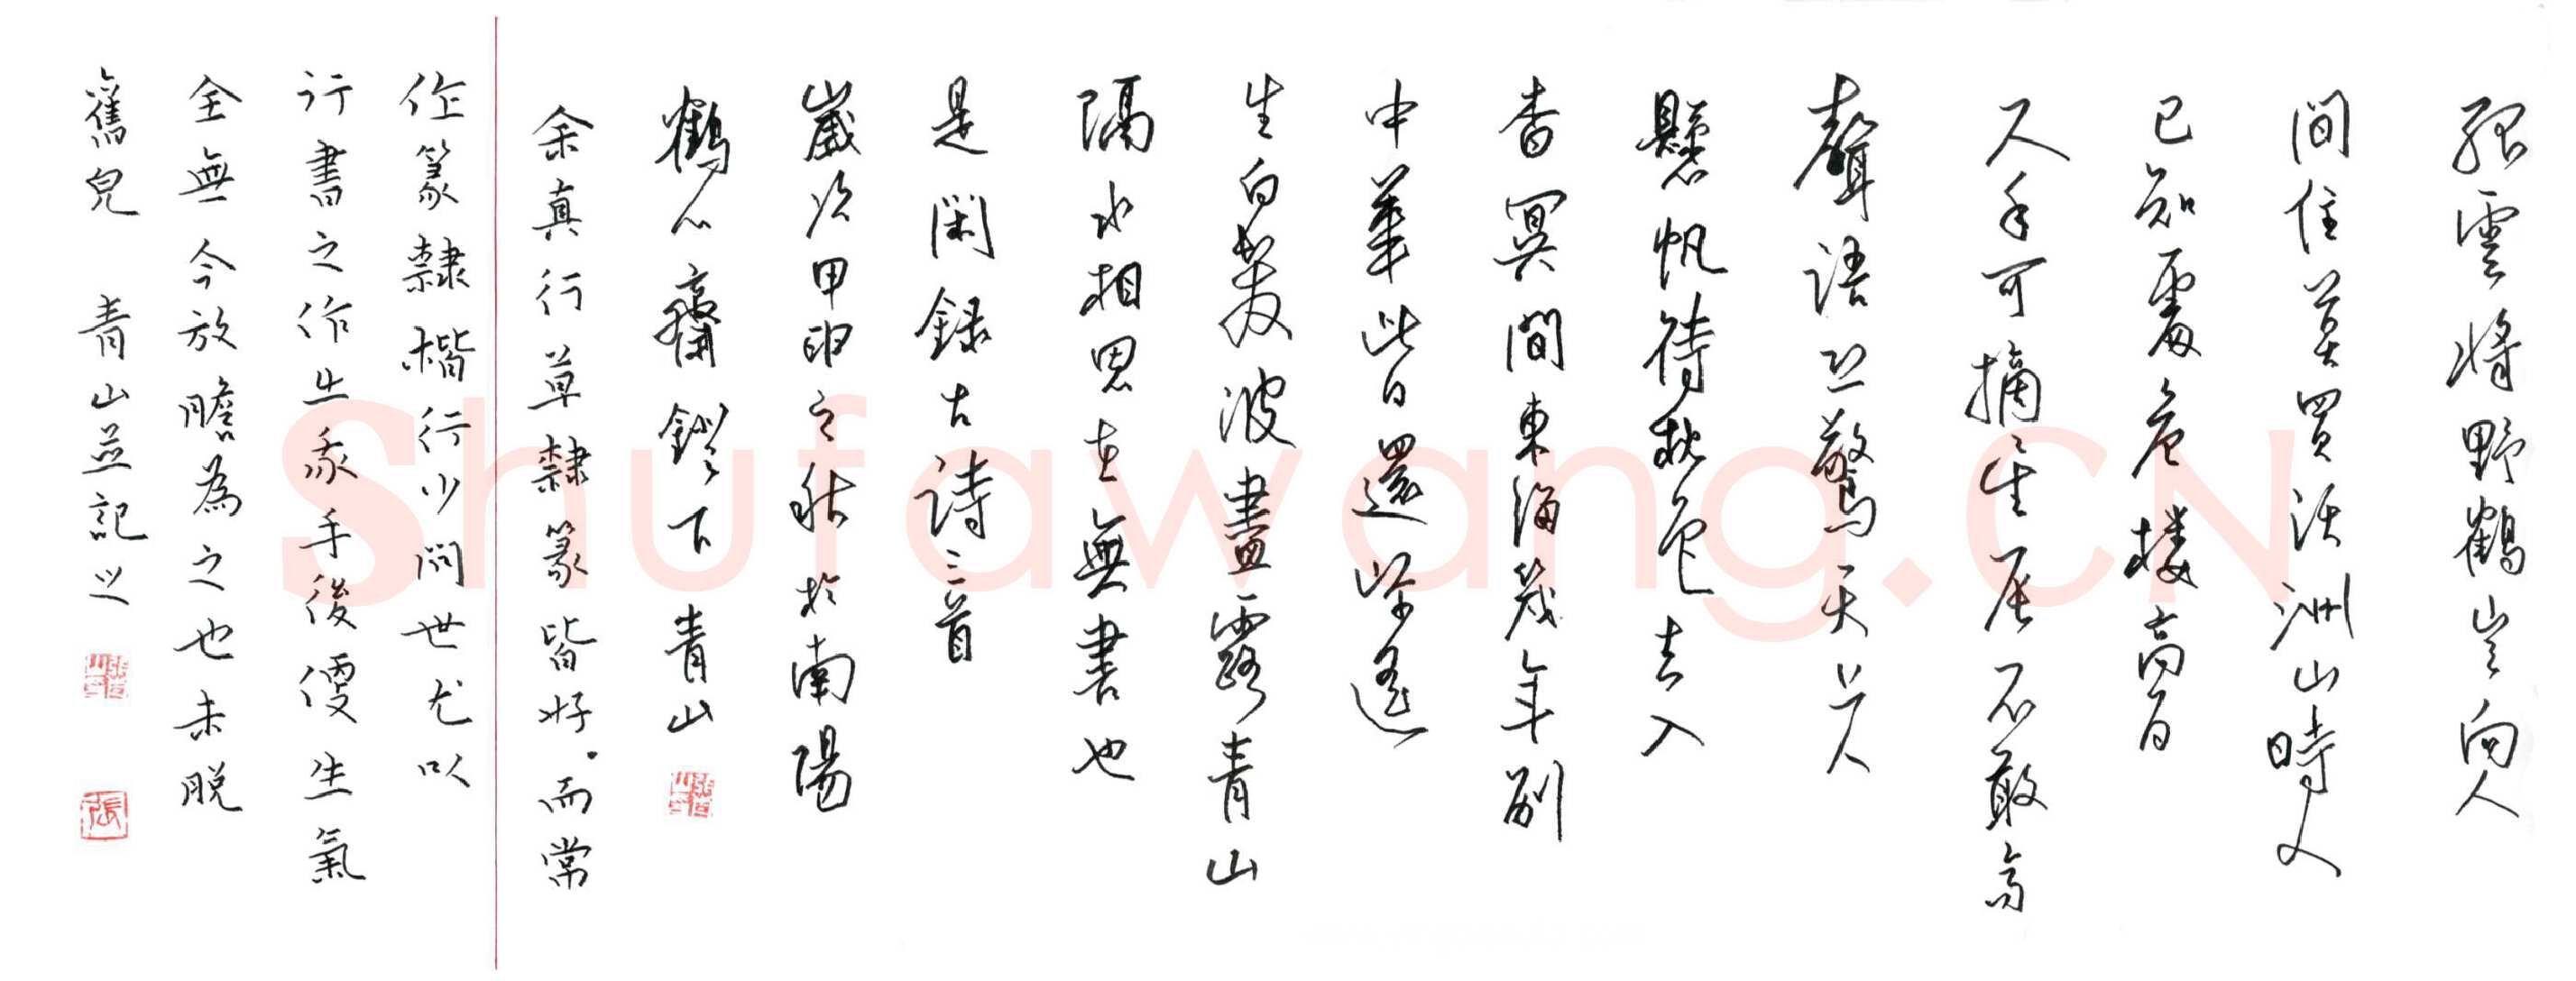 孤雲將野鶴豈向人
間住莫買沃洲山時人
已知處危樓高百
尺手可摘星辰不敢高
聲語恐驚天上人
懸帆待秋色去入
杳冥間東海幾年別
中華此日還岸遙
生白髮波盡露青山
隔水相思在無書也
是閑錄古詩三首
歲次甲申之秋於南陽
鶴心齋鐙下青山
余真行草隸篆皆好。而常
作篆隸楷行少問世尤以
行書之作出我手後便生氣
全無今放膽為之也未脫
舊皃 青山並記之
張
Shufawang.CN